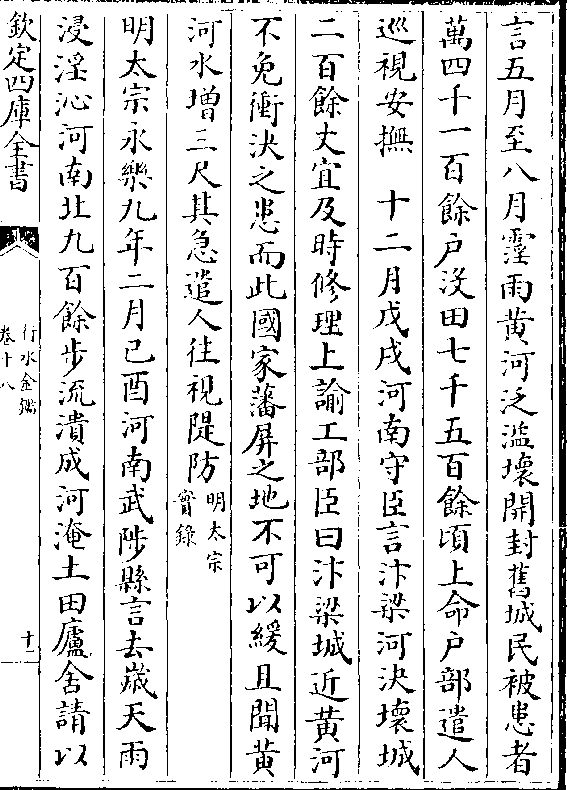 言五月至八月霪雨黄河泛滥壞開封舊城民被患者
萬四千一百餘户沒田七千五百餘頃上命户部遣人
巡視安撫　十二月戊戌河南守臣言汴梁河決壞城
二百餘丈宜及時修理上諭工部臣曰汴梁城近黄河
不免衝決之患而此國家藩屏之地不可以緩且聞黄
河水增三尺其急遣人往視隄防明太宗
實錄
明太宗永樂九年二月己酉河南武陟縣言去歲天雨
浸淫沁河南北九百餘步流潰成河淹土田廬舍請以
欽定四庫全書
行水金鑑
卷十八
十